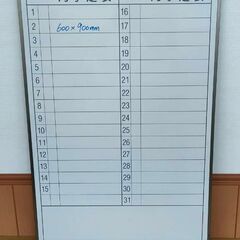 1 16
2 600×900mm 17
3 18
4 19
5 20
6 21
7 22
8 23
9 24
10 25
11 26
12 27
13 28
14 29
15 30
31